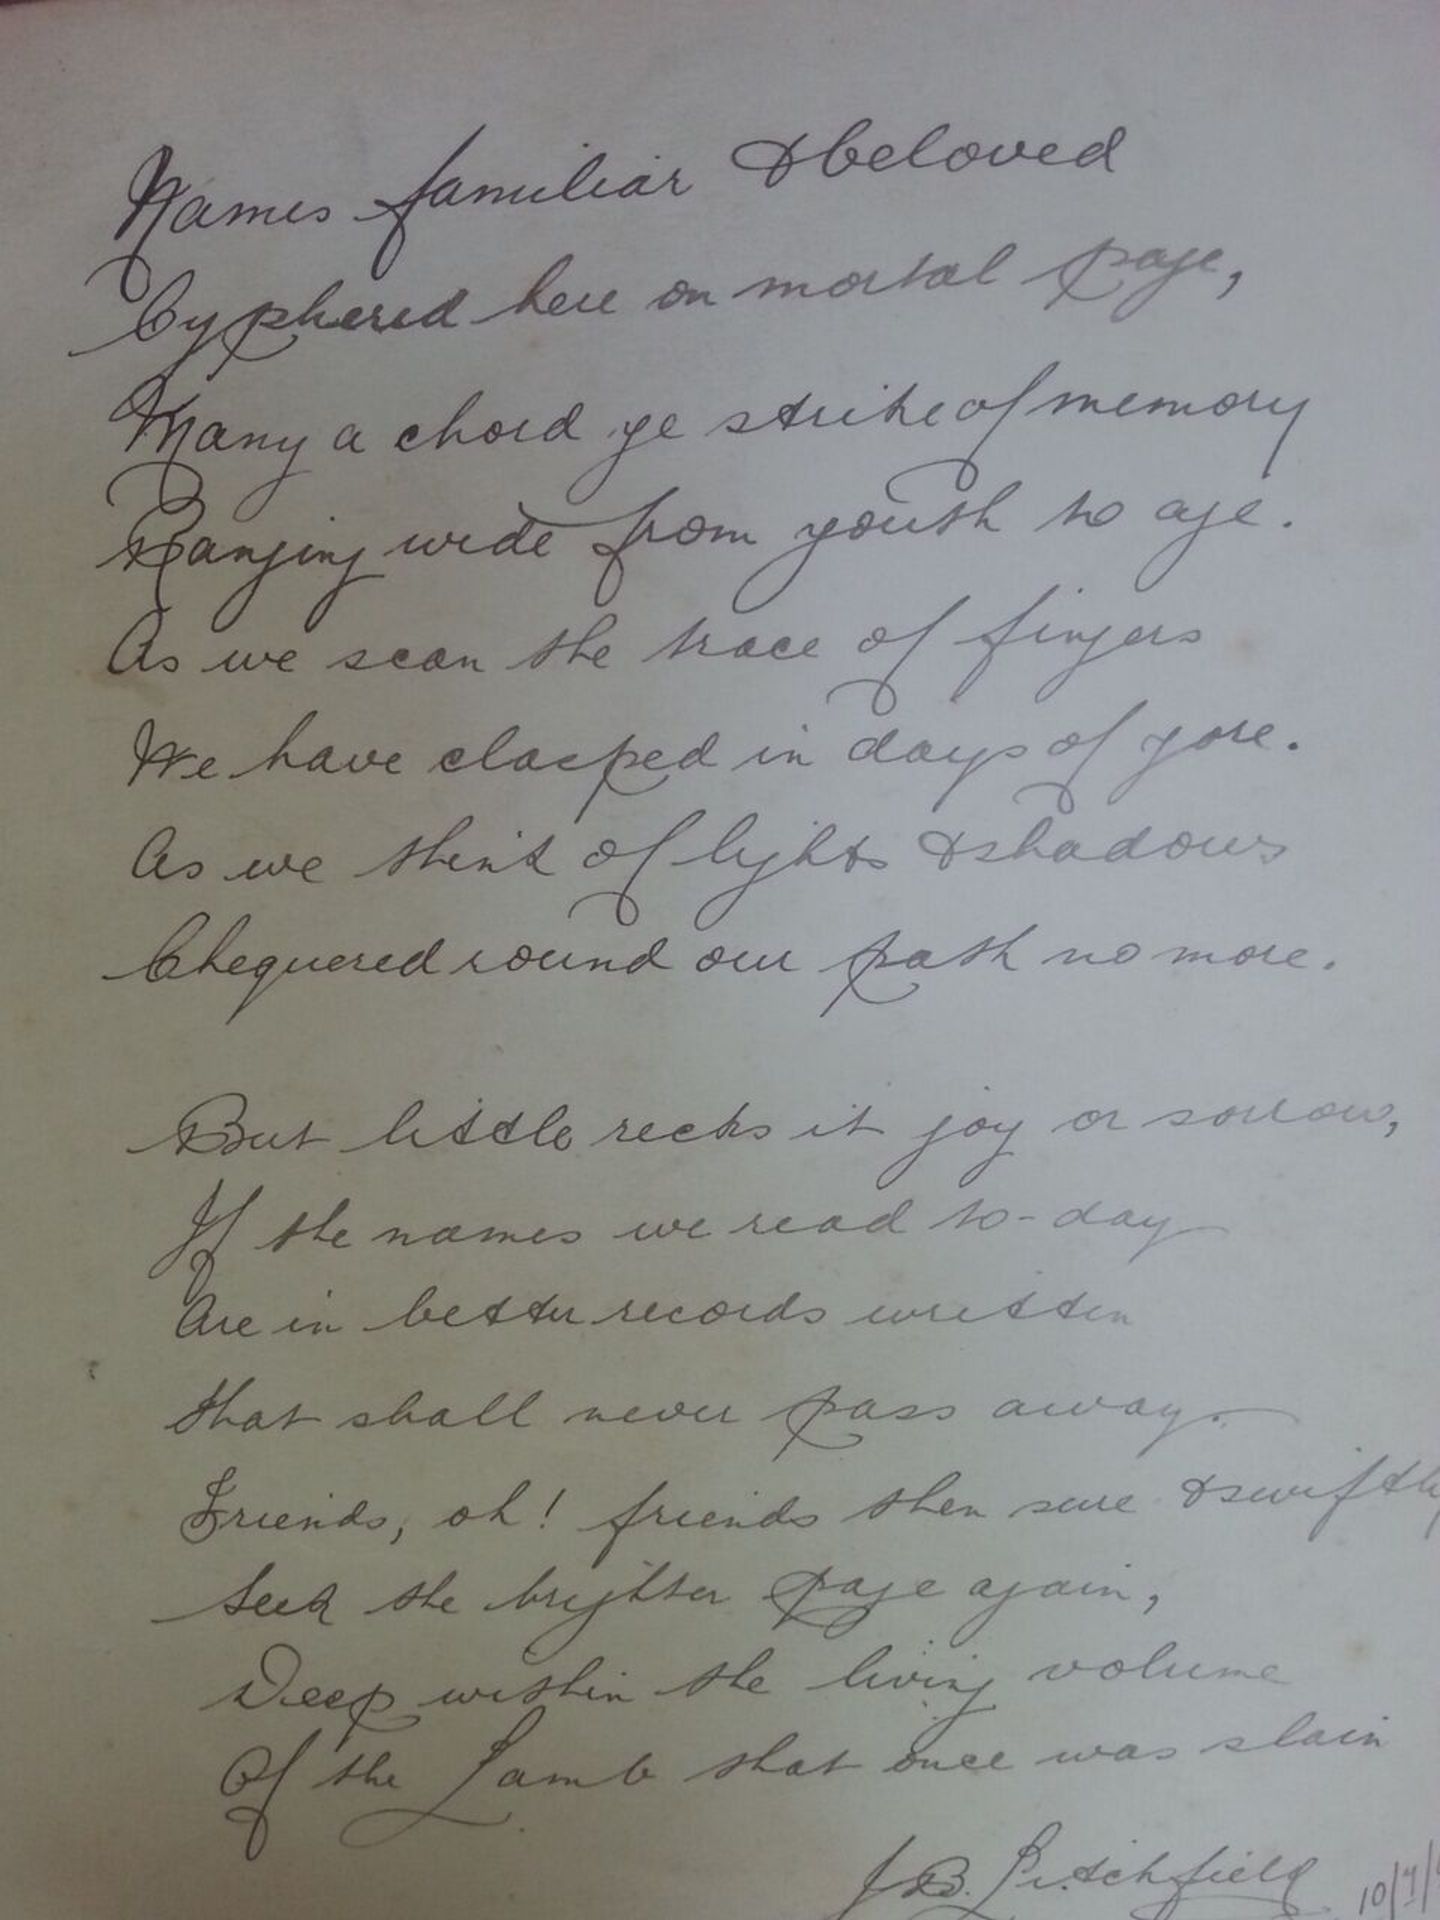 Names familiar & beloved
Cyphered here on mortal page,
Many a chord ye strike of memory
Ranging wide from youth to age.
As we scan the trace of fingers
We have clasped in days of yore.
As we think of lights & shadows
Chequered round our path no more.
But little recks it joy or sorrow,
If the names we read to-day
Are in better records written
that shall never pass away.
Friends, oh! friends then sure & swiftly
Seek the brighter page again,
Deep within the living volume
Of the Lamb that once was slain
J B. Litchfield